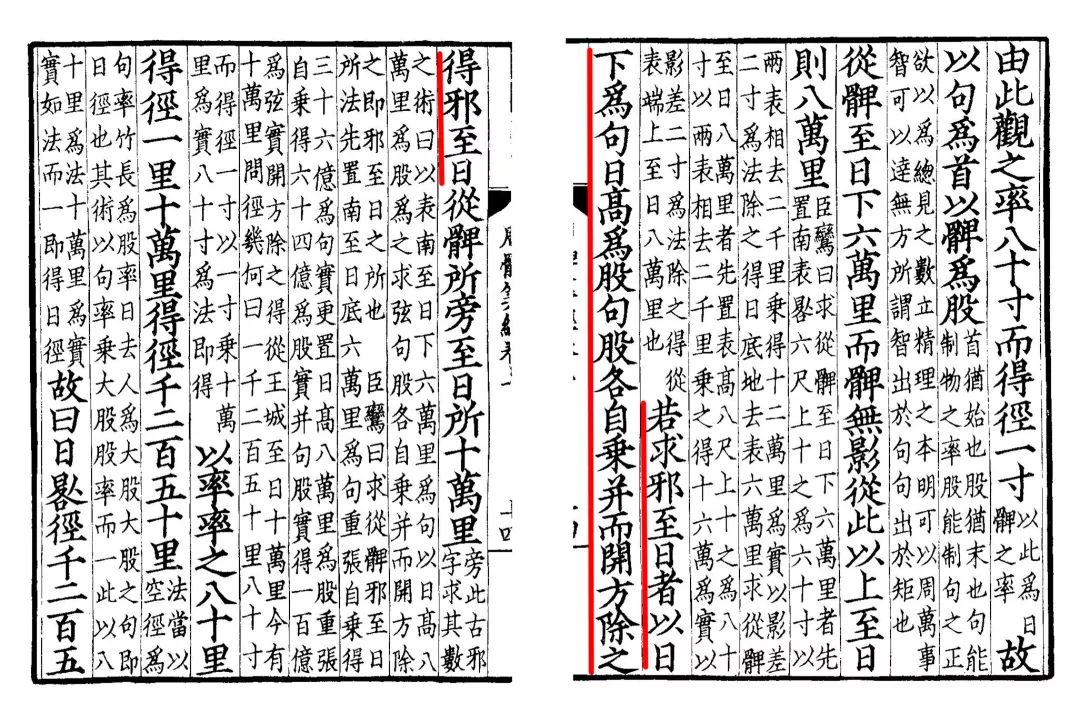 由此觀之率八十寸而得徑一寸以此爲日髀之率故
以句爲首以髀爲股首猶始也股猶末也句能制物之率股能制句之正
欲以爲總見之數立精理之本明可以周萬事
智可以達無方所謂智出於句句出於矩也
從髀至日下六萬里而髀無影從此以上至日
則八萬里臣鸞曰求從髀至日下六萬里者先置南表晷六尺上十之爲六十寸以
兩表相去二千里乘得十二萬里爲實以影差
二寸爲法除之得日底地去表六萬里求從髀
至日八萬里者先置表髙八尺上十之爲八十
寸以兩表相去二千里乘之得十六萬爲實以
影差二寸爲法除之得從表端上至日八萬里也若求邪至日者以日
下爲句日髙爲股句股各自乘并而開方除之
得邪至日從髀所旁至日所十萬里旁此古邪字求其數
之術曰以表南至日下六萬里爲句以日髙八
萬里爲股爲之求弦句股各自乘并而開方除
之即邪至日之所也 臣鸞曰求從髀邪至日
所法先置南至日底六萬里爲句重張自乘得
三十六億爲句實更置日髙八萬里爲股重張
自乘得六十四億爲股實并句股實得一百億
爲弦實開方除之得從王城至日十萬里今有
十萬里問徑幾何曰一千二百五十里八十寸
而得徑一寸以一寸乘十萬里爲實八十寸爲法即得以率率之八十里
得徑一里十萬里得徑千二百五十里法當以空徑爲
句率竹長爲股率日去人爲大股大股之句即
日徑也其術以句率乘大股股率而一此以八
十里爲法十萬里爲實實如法而一即得日徑故曰日晷徑千二百五